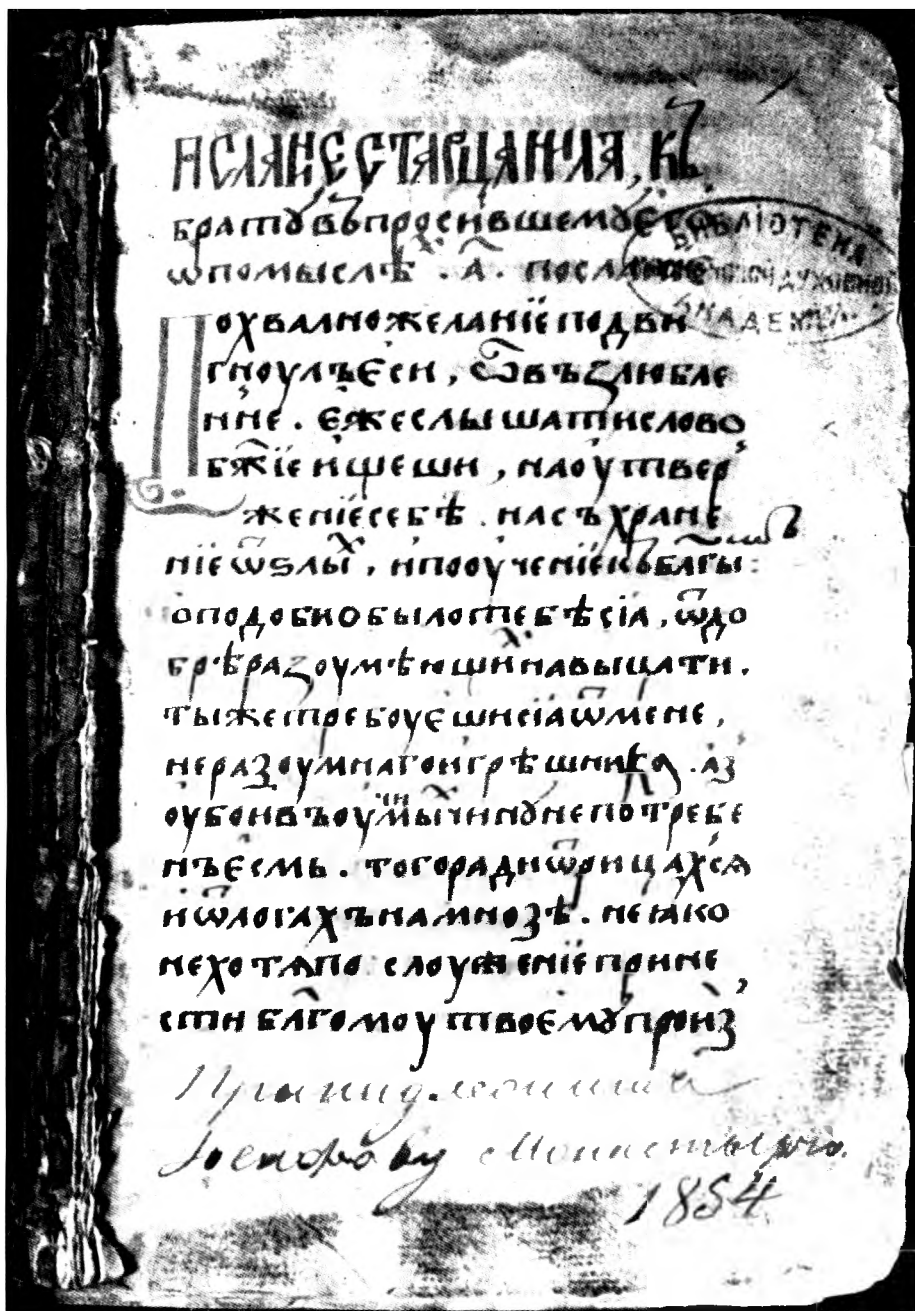 ПСЛАНЇЕ СТАРЦА НИЛА, КЪ
братꙋ въпросившемꙋ его
ѡ помыслѣх. а҃. посланїе
БИБЛІОТЕКА
ДУХОВНОЙ
АКАДЕМІИ
Похвално желанїе подви
гноулъ єси, ѿ възлюбле
нне. єже слышати слово
бж҃їе ищеши, на оутвер
женїе себѣ. на съхране
нїе ѿ ѕлых, и пооученїе къ бл҃гы:
оподобно было тебѣ сїа, ѿ до
брѣ разоумѣющих навыцати.
ты же требоуєши сїа ѿ мене,
неразоумнаго и грѣшника. аз
оубо и въ оучимых чинꙋ непотребе
нъ єсмь. того ради ѿрицахся
и ѿлогахъ на мнозѣ. не ꙗко
не хотѧ послоуженїе прине
сти бл҃гомоу твоємꙋ произ
Принадлежитъ
Іосифову Монастырю.
1854